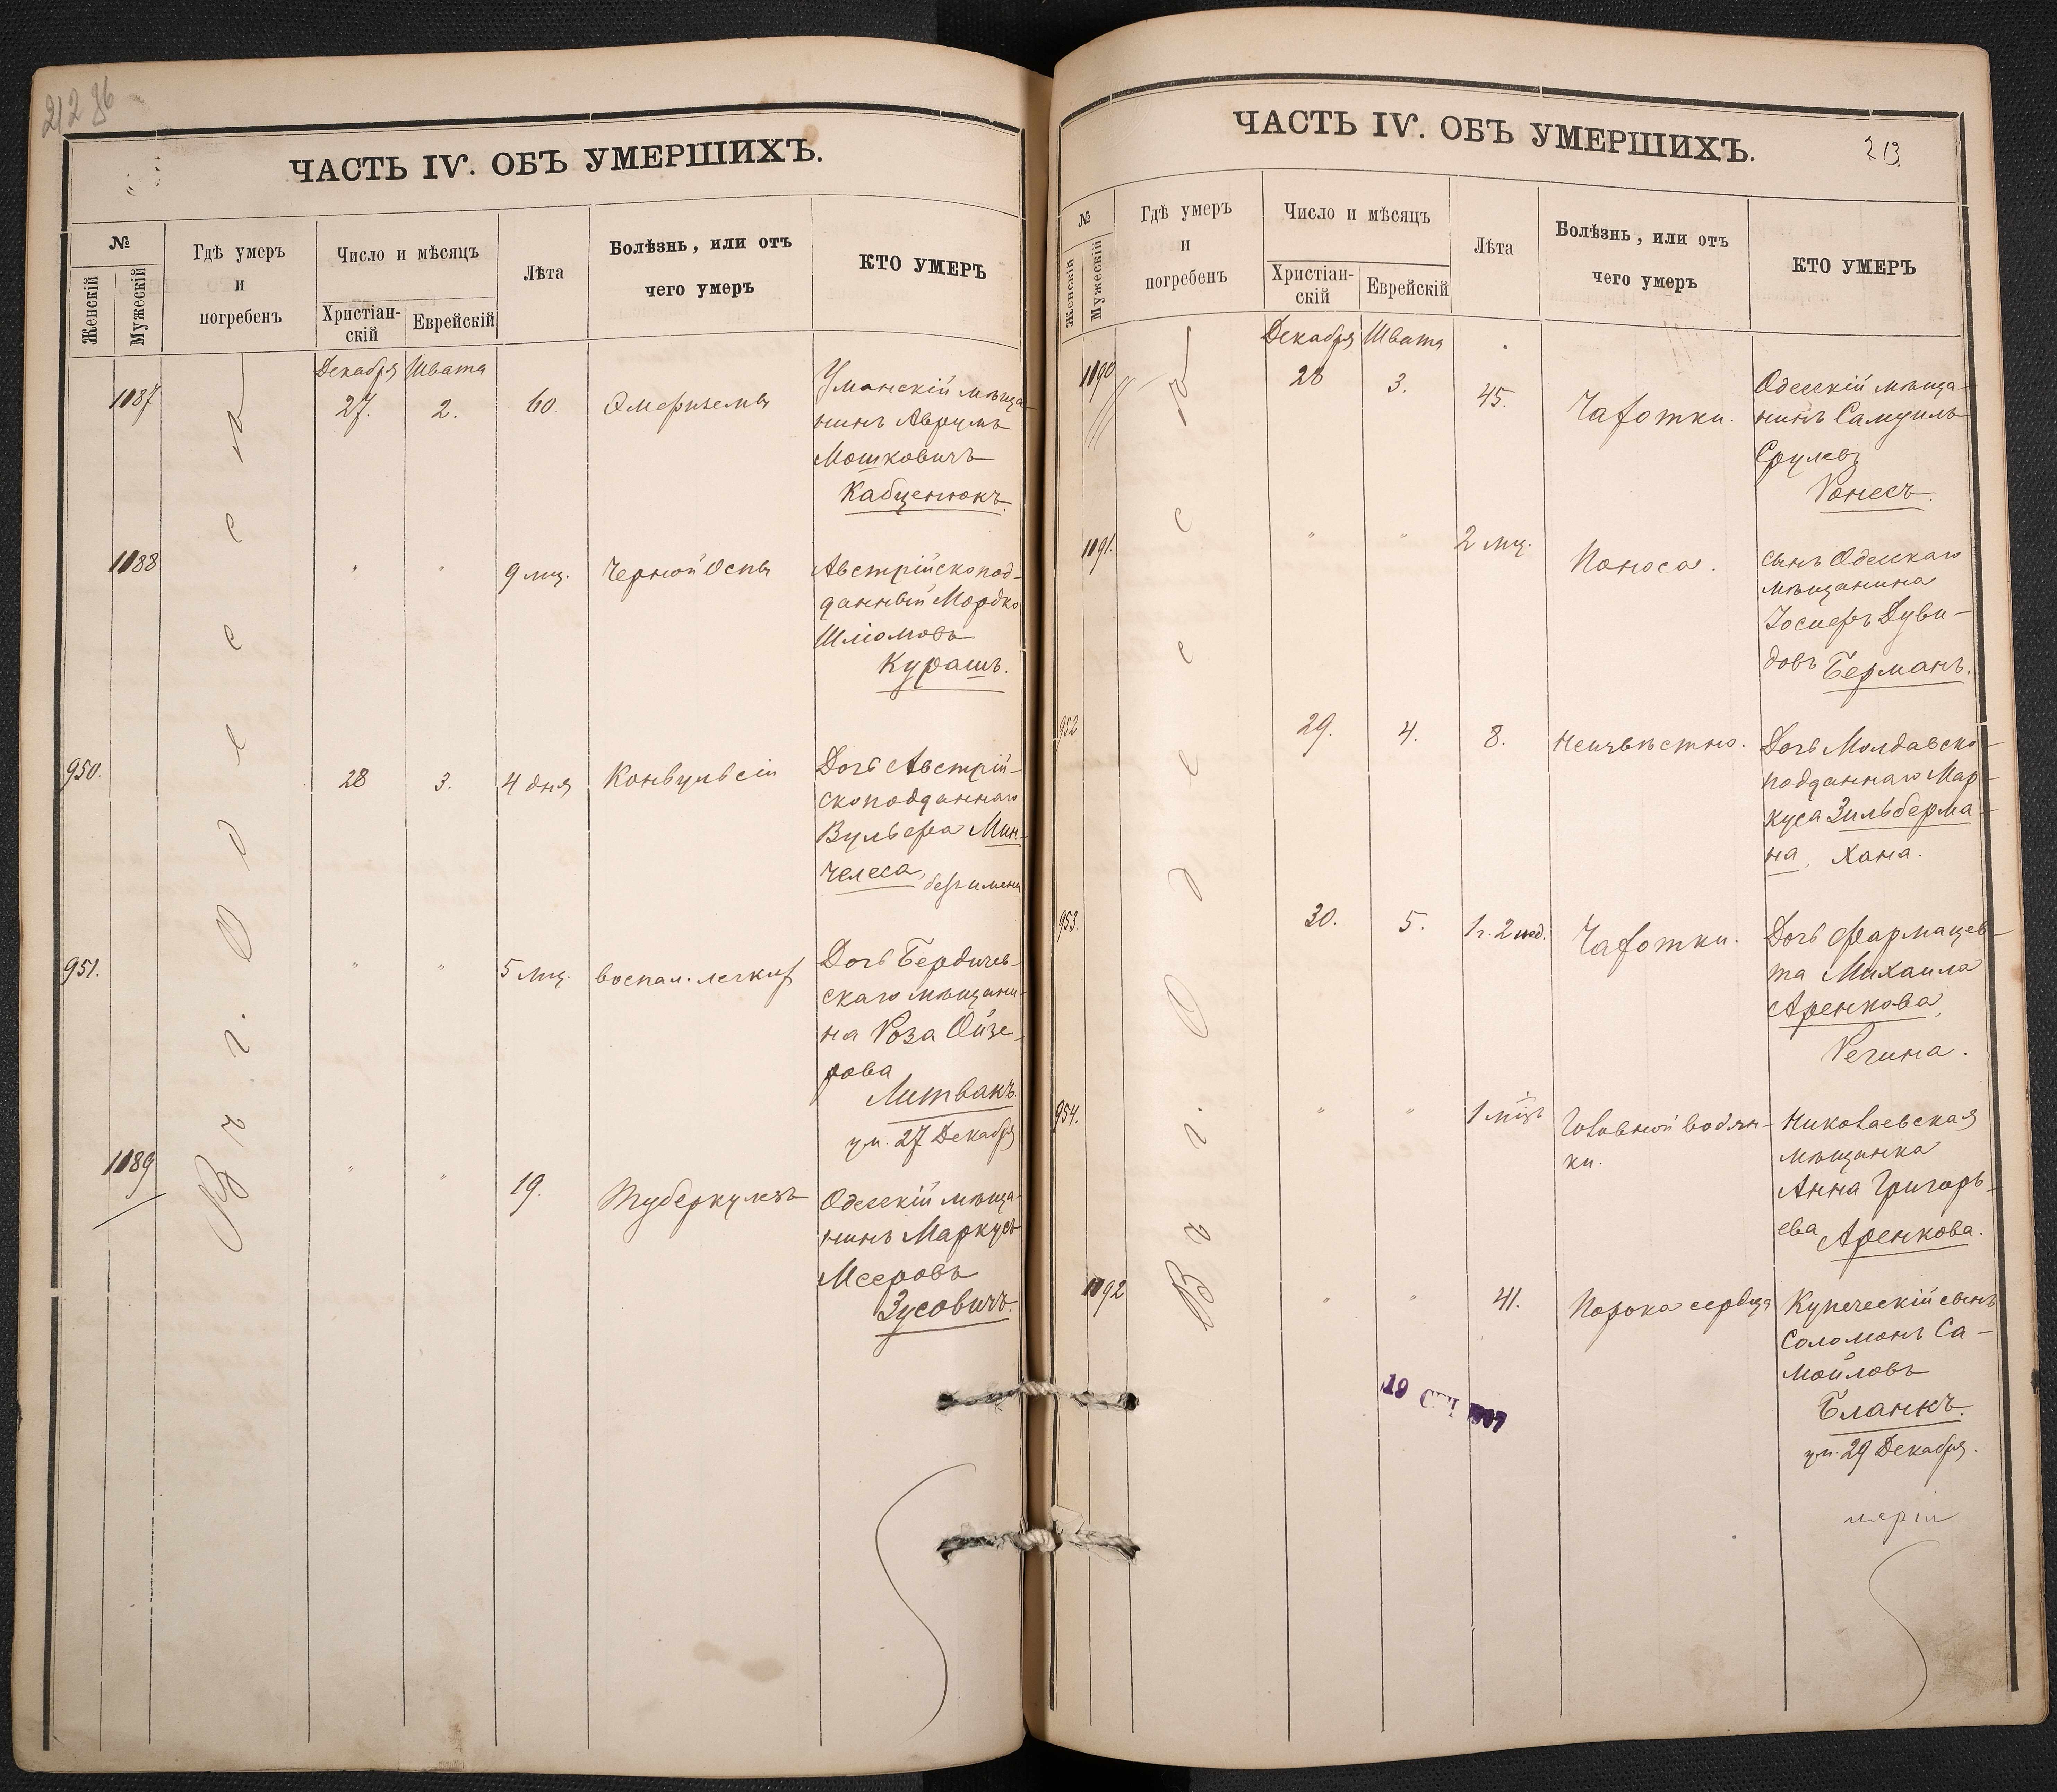 212 86
ЧАСТЬ IV. ОБЪ УМЕРШИХЪ.
№
Женскій
Мужескій
Гдѣ умеръ
и
погребенъ
Число и мѣсяцъ
Христіан-
скій
Еврейскій
Лѣта
Болѣзнь, или отъ
чего умеръ
КТО УМЕРЪ
Въ г. Одессѣ
Декабря Швата
1087 27. 2. 60. Эмфиземы
Уманскій мѣща-
нинъ Аврумъ
Мошковичъ
Кабценюкъ.
1088 " " 9 мц. Черной Оспы
Австрійскопод-
данный Мордко
Шліомовъ
Курашъ.
950. 28 3. 4 дня Конвульсіи
Дочь Австрій-
скоподданнаго
Вульфа Мин-
челеса, безъ имени
951. " " 5 мц. воспал. легких
Дочь Бердичев-
скаго мѣщани-
на Роза Ойзе-
рова
Литвакъ.
ум. 27 Декабря
1089 " " 19. Туберкулезъ
Одесскій мѣща-
нинъ Маркусъ
Мееровъ
Зусовичъ.
ЧАСТЬ IV. ОБЪ УМЕРШИХЪ.
213.
№
Женскій
Мужескій
Гдѣ умеръ
и
погребенъ
Число и мѣсяцъ
Христіан-
скій
Еврейскій
Лѣта
Болѣзнь, или отъ
чего умеръ
КТО УМЕРЪ
Въ г. Одессѣ
Декабря Швата
1090 28 3. 45. Чахотки.
Одесскій мѣща-
нинъ Самуилъ
Срулевъ
Ронесъ.
1091. " " 2 мц. Поноса.
Сынъ Одесскаго
мѣщанина
Іосифъ Дуви-
довъ Берманъ.
952 29. 4. 8. Неизвѣстно.
Дочь Молдавско-
подданнаго Мар-
куса Зильберма-
на, Хана.
953. 30. 5. 1 г. 2 нед. Чахотки.
Дочь фармацев-
та Михаила
Аренкова,
Регина.
954. " " 1 мцъ Головной водян-
ки.
Николаевская
мѣщанка
Анна Григорь-
ева Аренкова.
1092 " " 41. Порока сердца
Купеческій сынъ
Соломонъ Са-
мойловъ
Бланкъ.
ум. 29 Декабря.
19